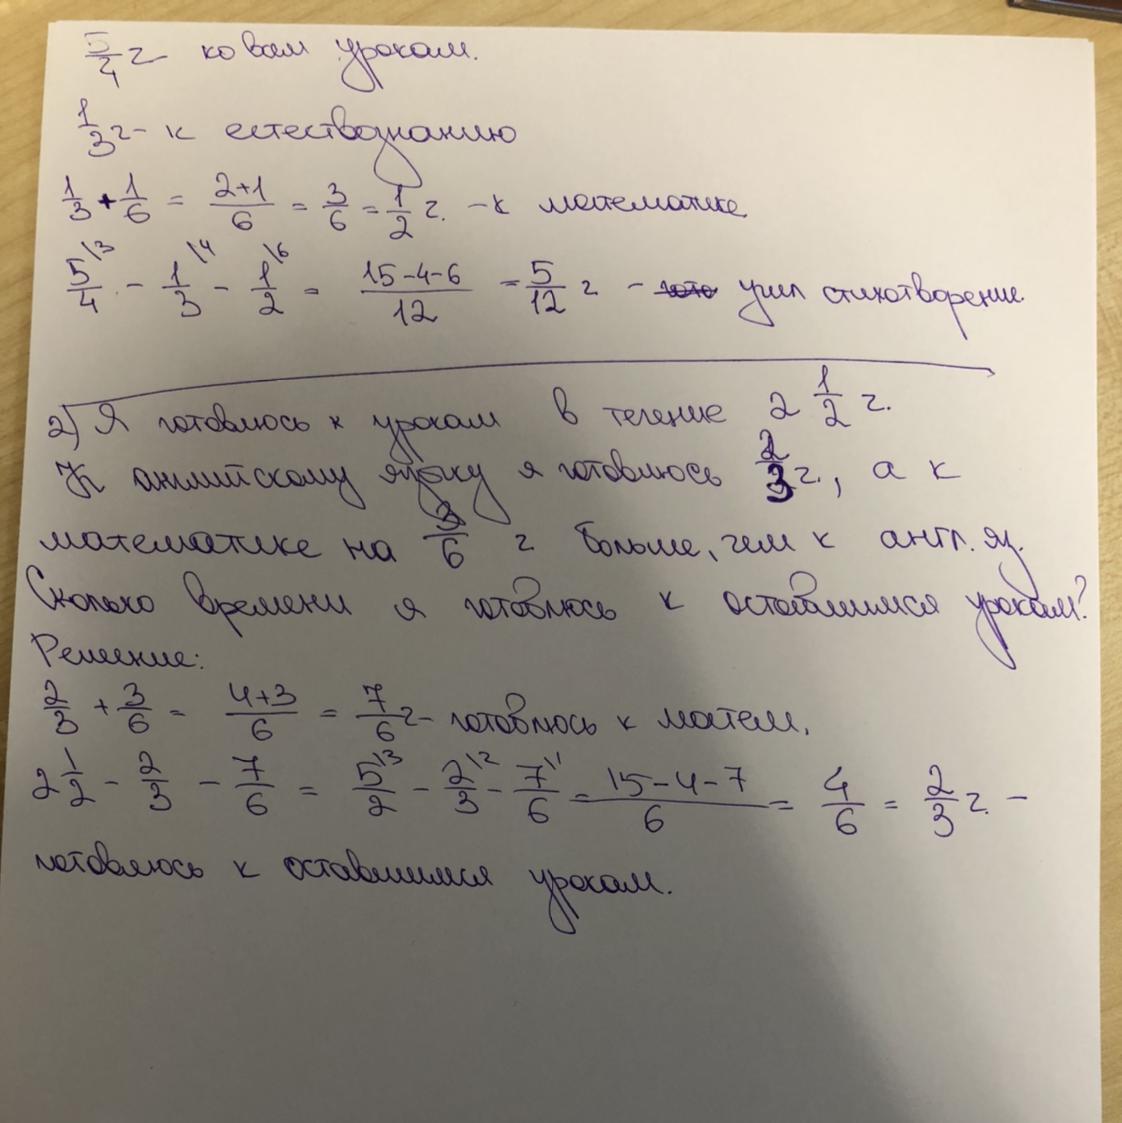 5/4 г ко всем урокам.
1/3 г - к естествознанию
1/3 + 1/6 = 2+1/6 = 3/6 = 1/2 г. - к математике
5\3/4 - 1\4/3 - 1\6/2 = 15-4-6/12 = 5/12 г - учил стихотворение
2) Я готовлюсь к урокам в течение 2 1/2 г.
К английскому языку я готовлюсь 2/3 г., а к
математике на 3/6 г больше, чем к англ. яз.
Сколько времени я готовлюсь к оставшимся урокам?
Решение:
2/3 + 3/6 = 4+3/6 = 7/6 г - готовлюсь к матем.
2 1/2 - 2/3 - 7/6 = 5\3/2 - 2\2/3 - 7\1/6 = 15-4-7/6 = 4/6 = 2/3 г. -
готовлюсь к оставшимся урокам.